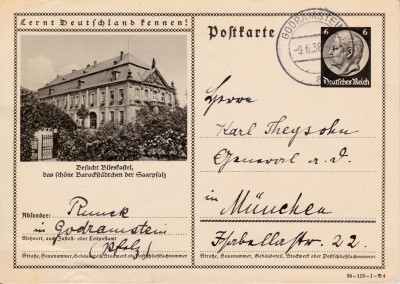 Lernt Deutschland kennen!
Postkarte
GODRAMSTEIN
-9.6.38
6 6
Deutsches Reich
Besucht Blieskastel,
das schöne Barockstädtchen der Saarpfalz
Herrn
Karl Theysohn
General a. D.
in München
Isabellastr. 22.
Absender:
in Godramstein
Wohnort, auch Zustell- oder Leitpostamt
(Pfalz)
Straße, Hausnummer, Gebäudeteil, Stockwerk od. Postschließfachnummer
Straße, Hausnummer, Gebäudeteil, Stockwerk oder Postschließfachnummer